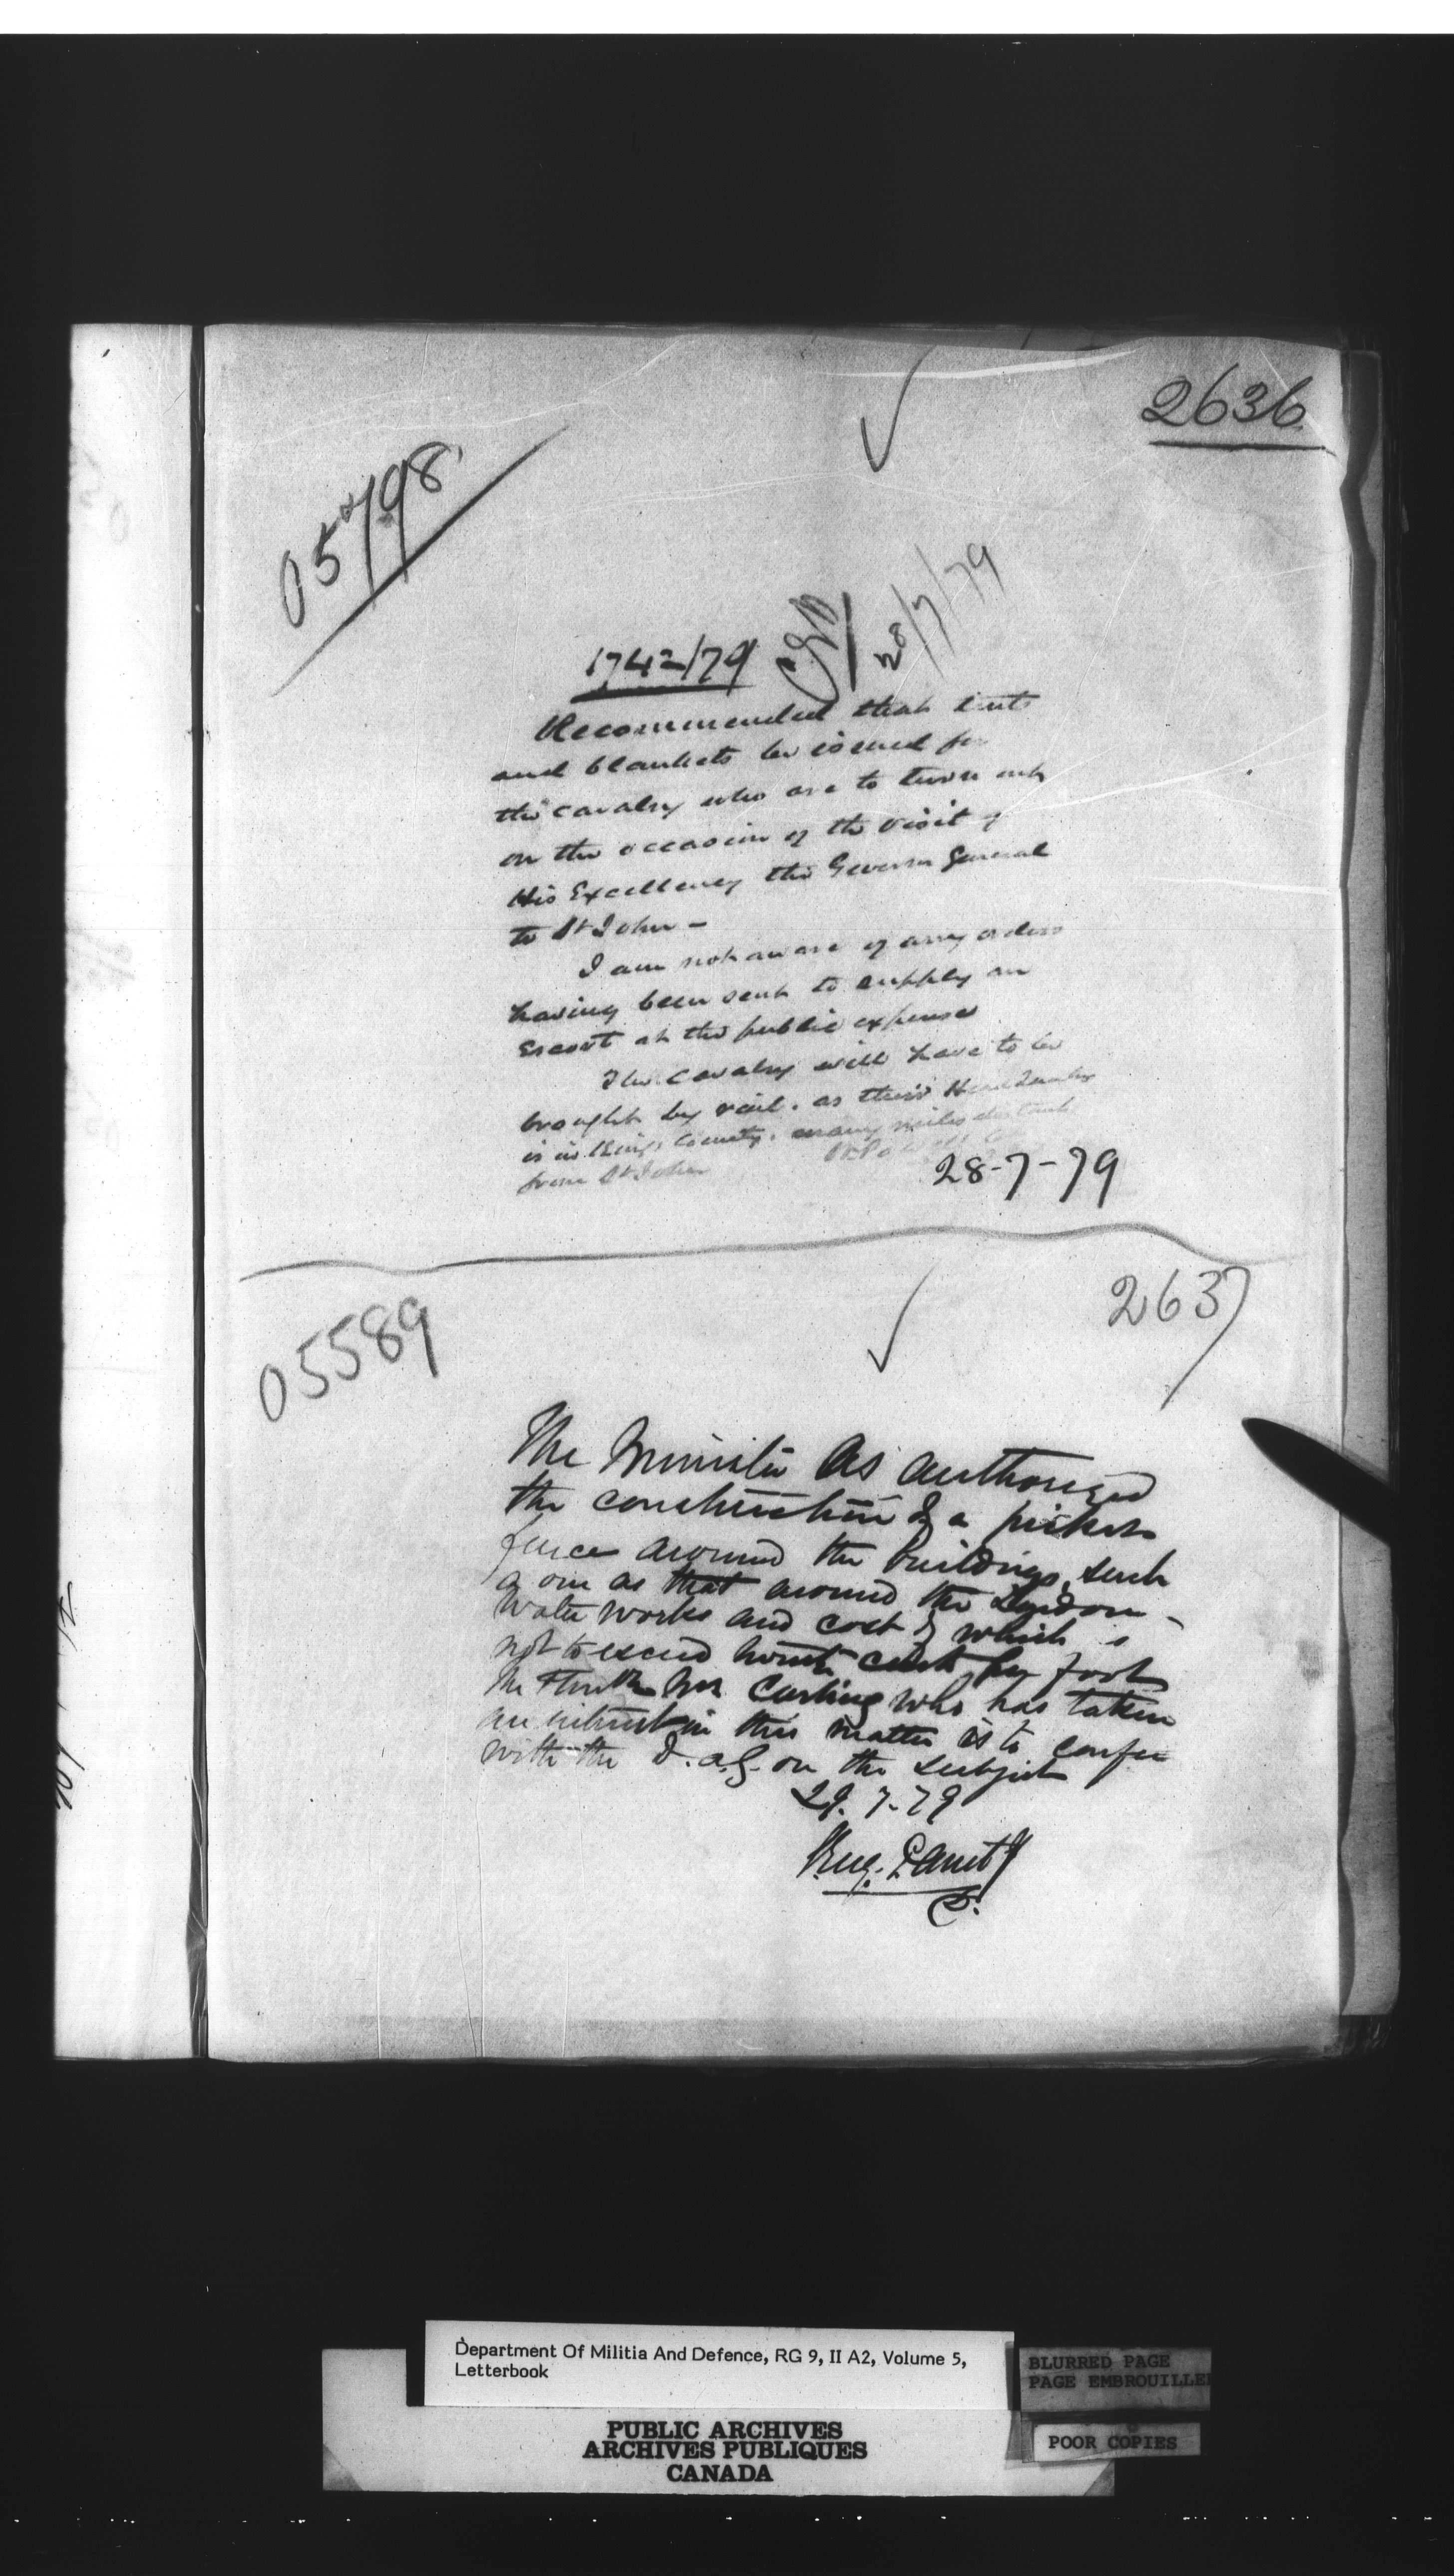 2636
05798
1742/79
28/7/79
Recommended that tents
and blankets be issued for
the cavalry who are to turn out
on the occasion of the visit of
His Excellency the Governor General
to St John -
I am not aware of any orders
having been sent to supply an
Escort at the public expense
The Cavalry will have to be
brought by rail. as their Head Quarters
is in Kings County, many miles distant
from St John
28-7-79
2637
05589
The Minister as authorized
the construction of a picket
fence around the buildings, such
a one as that around the London
Water Works and cost of which is
not to exceed cents per foot
The Honble Mr. Carling who has taken
an interest in this matter is to confer
with the D.A.G. on the subject
29.7.79
Eug. Panet
D.
Department Of Militia And Defence, RG 9, II A2, Volume 5,
Letterbook
BLURRED PAGE
PAGE EMBROUILLEE
POOR COPIES
PUBLIC ARCHIVES
ARCHIVES PUBLIQUES
CANADA